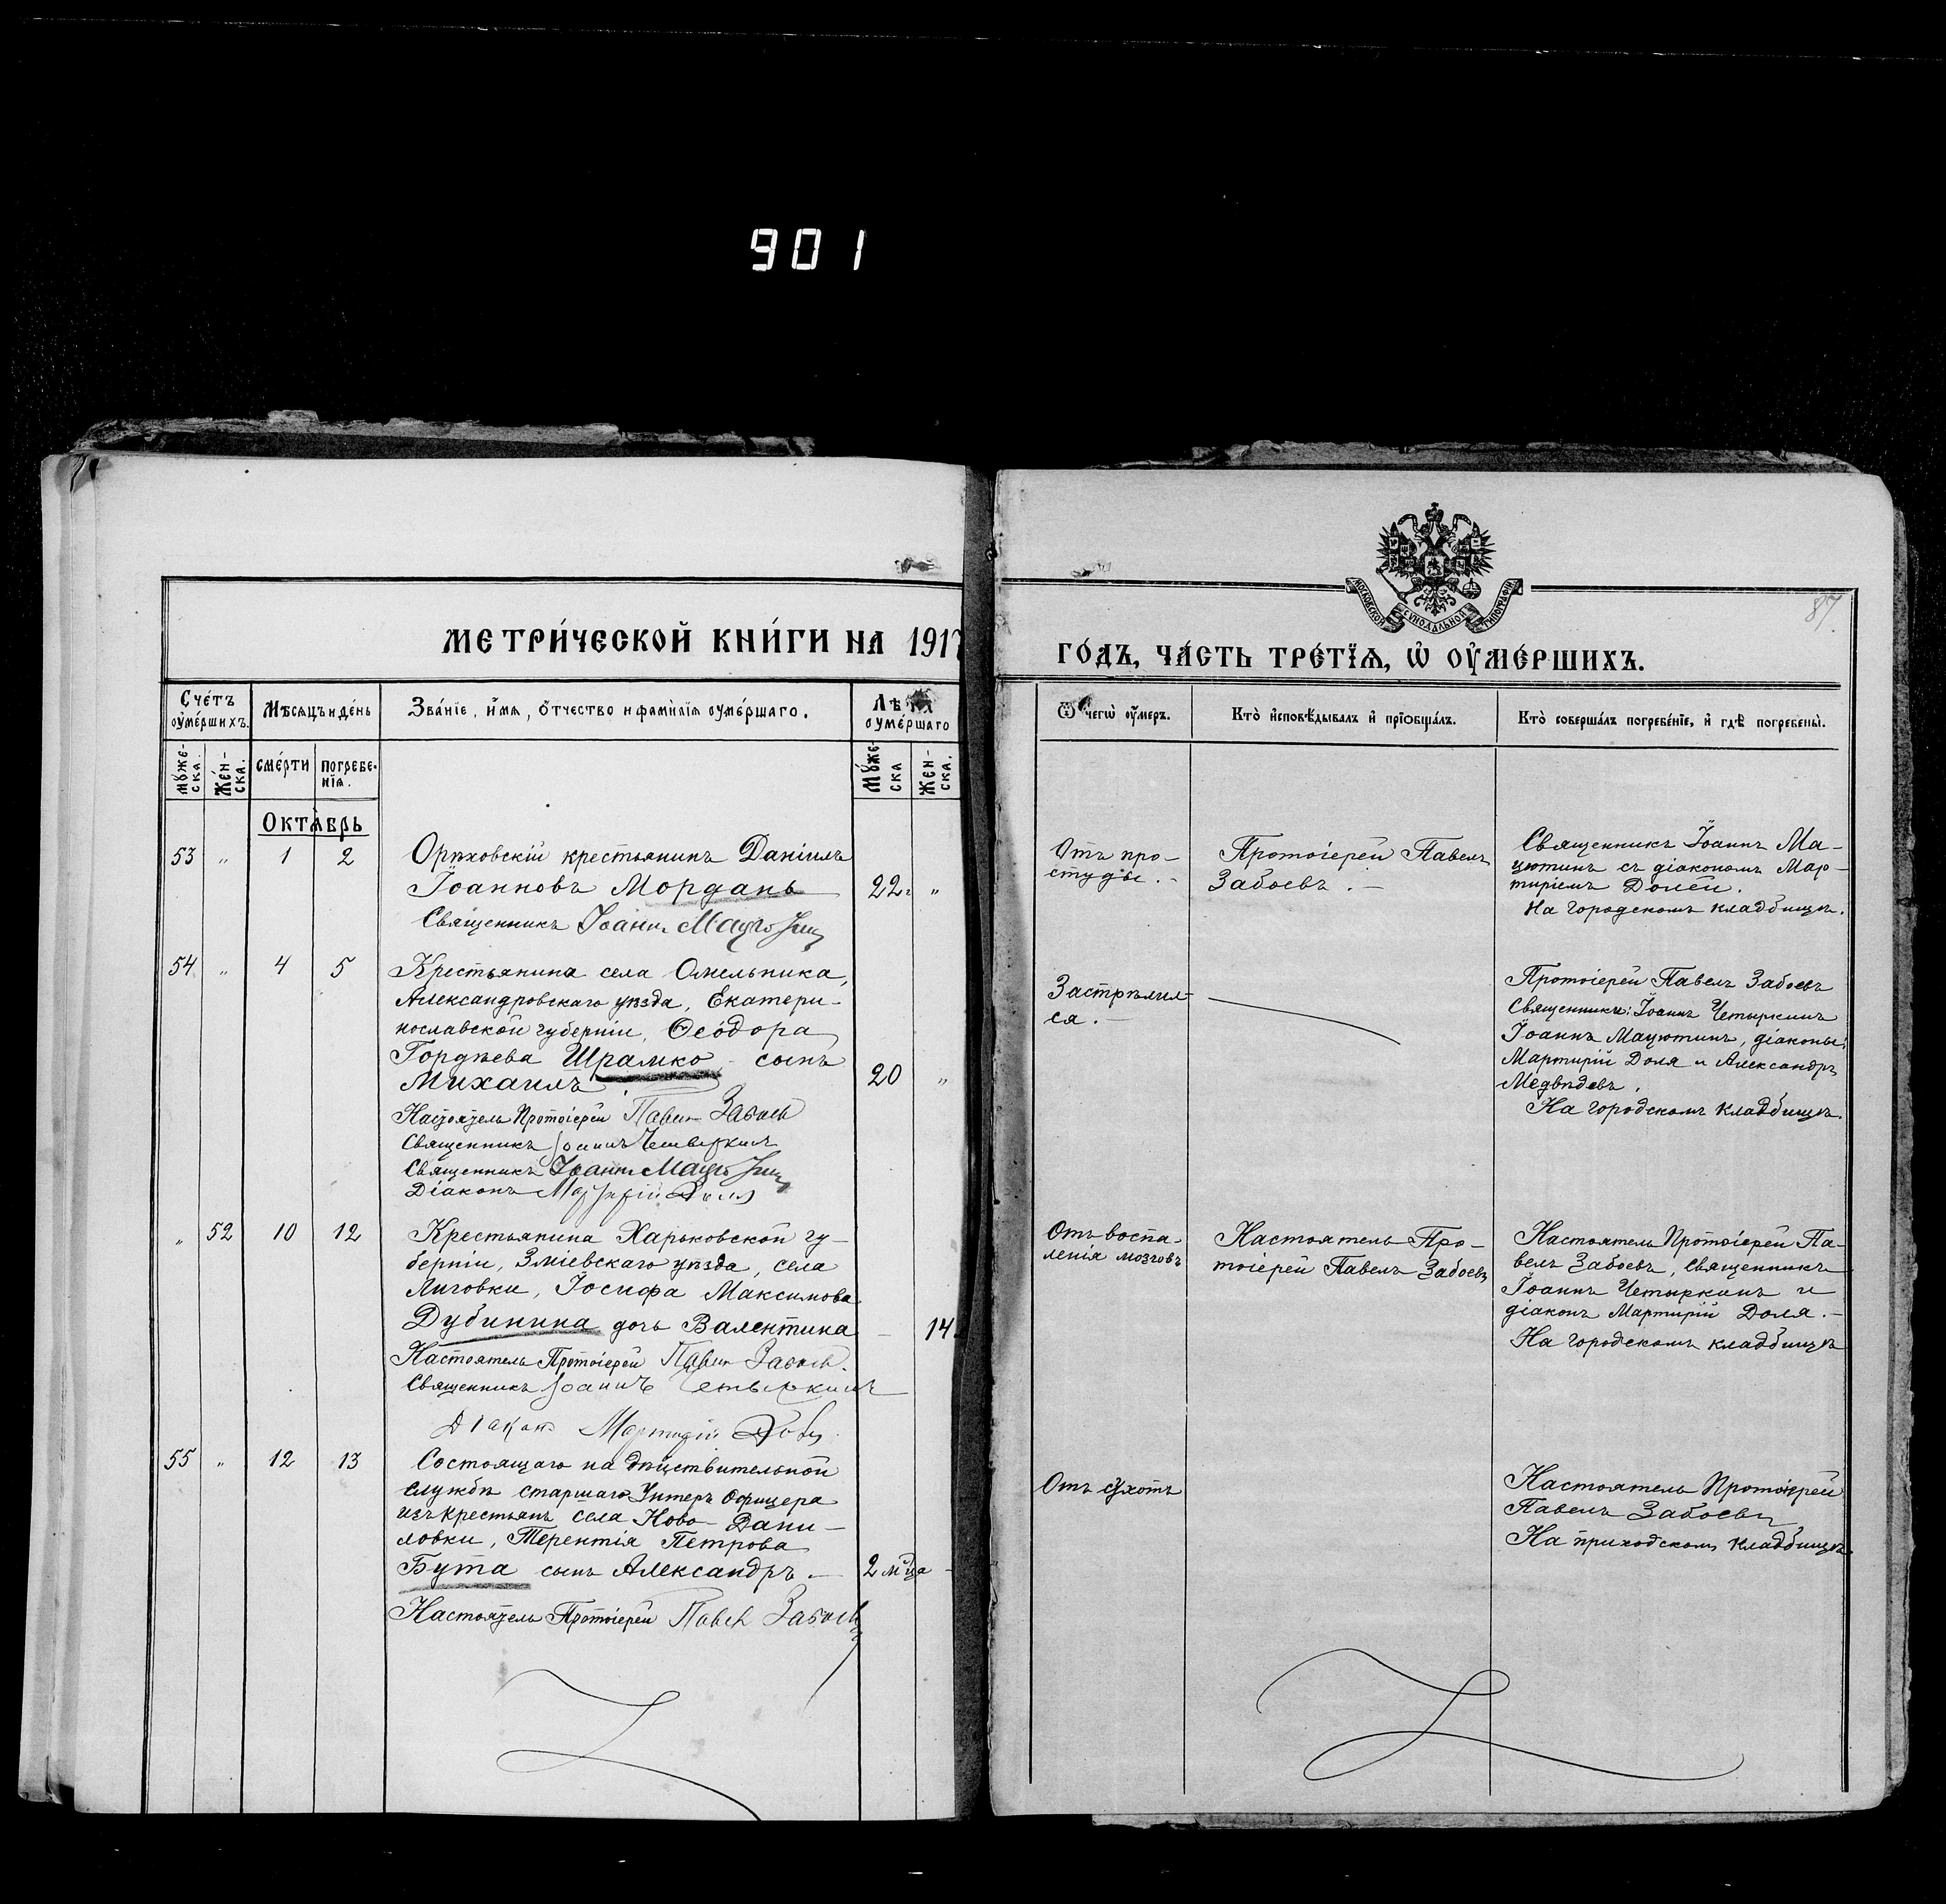 901
МОСКОВСКОЙ СѴНОДАЛЬНОЙ ТИПОГРАФІИ
87.
МЕТРИ́ЧЕСКОЙ КНИ́ГИ НА 1917
ГО́ДЪ, ЧА́СТЬ ТРЕ́ТЇѦ, Ѽ ОУ҆МЕ́РШИХЪ.
Сче́тъ оу҆ме́ршихъ.
Мѣсѧцъ и де́нь
Зва́нїе, и҆́мѧ, ѻ҆́тчество и фами́лїѧ оуме́ршаго.
Лѣта оуме́ршаго
Мꙋже-ска.
Же́н-ска.
сме́рти
погребе-нїѧ.
Мꙋ́же-ска
Жен-ска.
Ѿ чегѡ̀ оу҆́меръ.
Кто̀ и҆сповѣ́дывалъ и҆ прїѡбща́лъ.
Кто̀ соверша́лъ погребе́нїе, и҆ гдѣ̀ погребены̀.
Октѧ́брь
53 " 1 2
Орѣховскій крестьянинъ Даніилъ
Іоанновъ Морданъ
22 г "
Священникъ Іоаннъ Мацютин
Отъ про-
студы. -
Протоіерей Павелъ
Забоевъ. -
Священникъ Іоаннъ Ма-
цютинъ съ діакономъ Мар-
тиріемъ Долей.
На городскомъ кладбищѣ.
54 " 4 5
Крестьянина села Омельника,
Александровскаго уѣзда, Екатери-
нославской губерніи, Ѳеодора
Гордѣева Шрамко - сынъ
Михаилъ
20 "
Настоятель Протоіерей Павелъ Забоевъ
Священникъ Іоаннъ Четыркинъ
Священникъ Іоаннъ Мацютин
Діаконъ Мартирій Доля
Застрѣлил-
ся. -
Протоіерей Павелъ Забоевъ
Священники: Іоаннъ Четыркинъ
Іоаннъ Мацютинъ, діаконы:
Мартирій Доля и Александръ
Медвѣдевъ.
На городскомъ кладбищѣ.
" 52 10 12
Крестьянина Харьковской гу-
берніи, Зміевскаго уѣзда, села
Лиговки, Іосифа Максимова
Дубинина дочь Валентина
- 14
Настоятель Протоіерей Павелъ Забоевъ.
Священникъ Іоаннъ Четыркинъ
Діаконъ Мартирій Доля
Отъ воспа-
ленія мозговъ
Настоятель Про-
тоіерей Павелъ Забоевъ
Настоятель Протоіерей Па-
велъ Забоевъ, Священникъ
Іоаннъ Четыркинъ и
діаконъ Мартирій Доля. -
На городскомъ кладбищѣ
55 " 12 13
Состоящаго на дѣйствительной
службѣ старшаго Унтеръ Офицера
изъ крестьянъ села Ново-Дани-
ловки, Терентія Петрова
Бута сынъ Александръ. -
2 м-ца
Настоятель Протоіерей Павелъ Забоевъ
Отъ сухотъ
Настоятель Протоіерей
Павелъ Забоевъ
На приходскомъ кладбищѣ